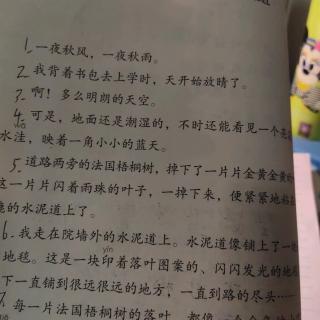 1. 一夜秋风，一夜秋雨。
2. 我背着书包去上学时，天开始放晴了。
3. 啊！多么明朗的天空。
4. 可是，地面还是潮湿的，不时还能看见一个亮
水洼，映着一角小小的蓝天。
5. 道路两旁的法国梧桐树，掉下了一片片金黄金黄的
这一片片闪着雨珠的叶子，一掉下来，便紧紧地粘在
的水泥道上了。
yìn
6. 我走在院墙外的水泥道上。水泥道像铺上了一
地毯。这是一块印着落叶图案的、闪闪发光的地毯
下一直铺到很远很远的地方，一直到路的尽头……
7. 每一片法国梧桐树的落叶，都像一个金色